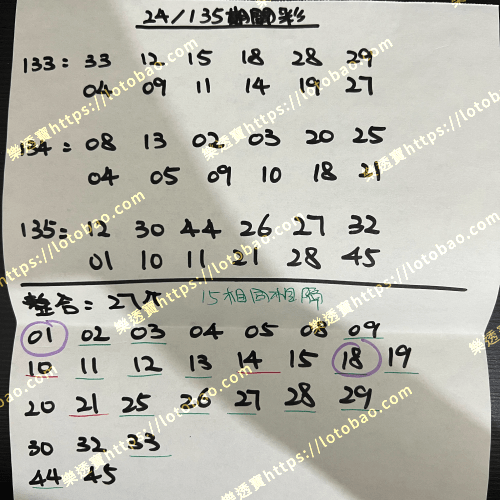 24/135期開彩
133: 33 12 15 18 28 29
04 09 11 14 19 27
134: 08 13 02 03 20 25
04 05 09 10 18 21
135: 12 30 44 26 27 32
01 10 11 21 28 45
整合: 27个 15相同相隣
01 02 03 04 05 08 09
10 11 12 13 14 15 18 19
20 21 25 26 27 28 29
30 32 33
44 45
樂透寶https://lotobao.com